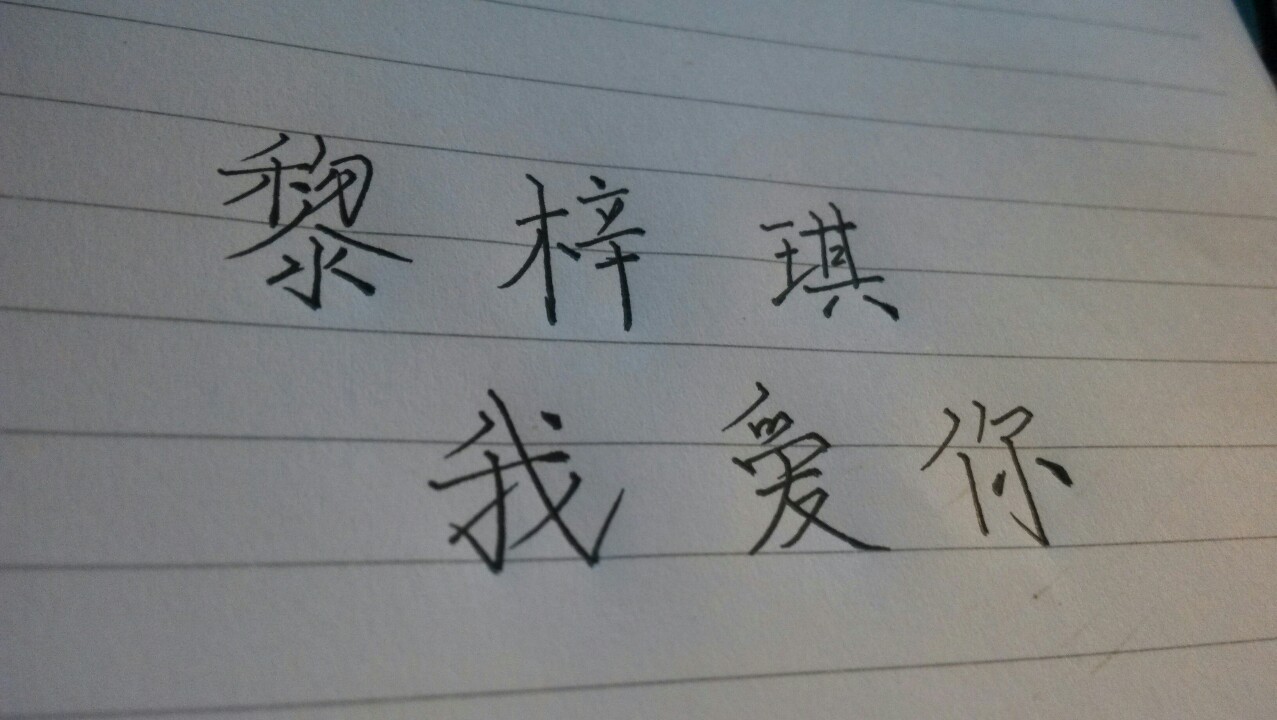 黎梓琪
我爱你